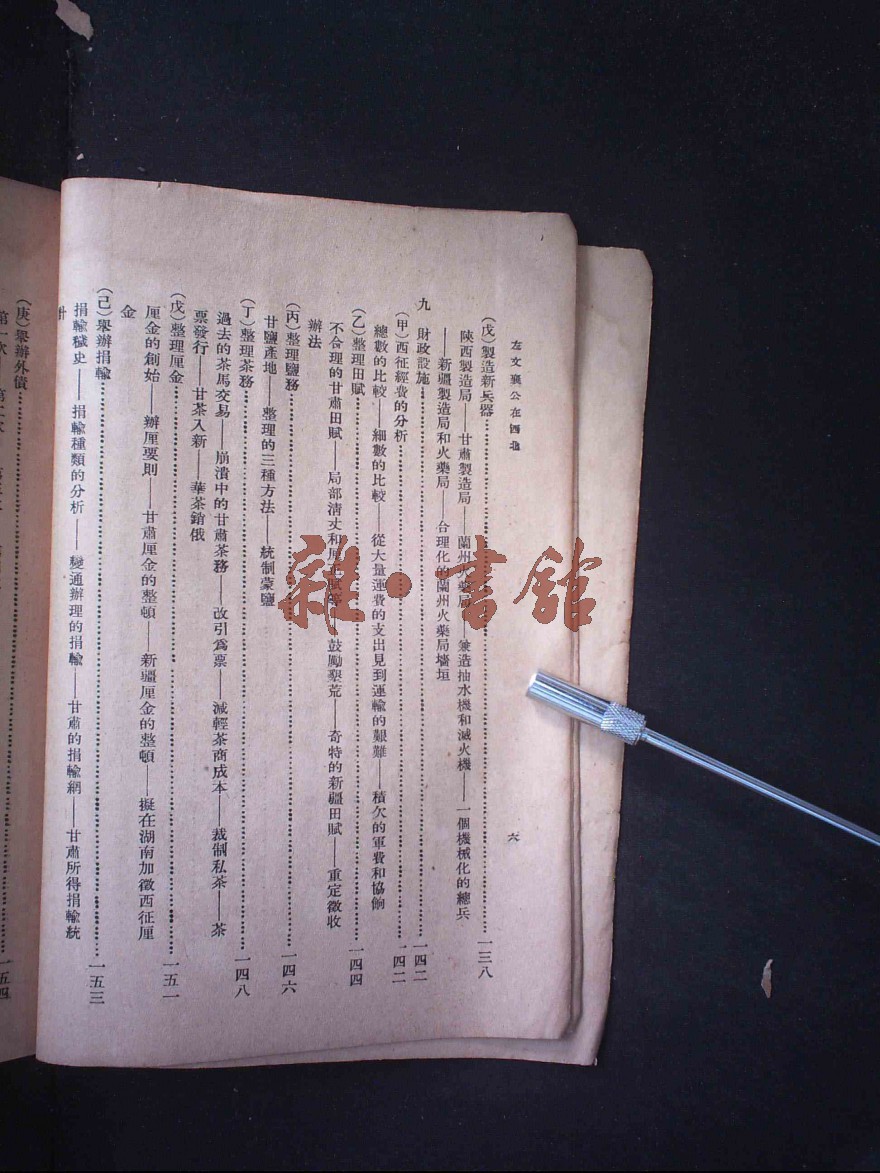 左文襄公在西北
六
(戊)製造新兵器 一三八
陝西製造局——甘肅製造局——蘭州火藥局——兼造抽水機和滅火機——一個機械化的總兵
——新疆製造局和火藥局——合理化的蘭州火藥局墻垣
九 財政設施 一四二
(甲)西征經費的分析 一四二
總數的比較——細數的比較——從大量運費的支出見到運輸的艱難——積欠的軍費和協餉
(乙)整理田賦 一四四
不合理的甘肅田賦——局部清丈和 鼓勵墾荒——奇特的新疆田賦——重定徵收
辦法
(丙)整理鹽務 一四六
甘鹽產地——整理的三種方法——統制蒙鹽
(丁)整理茶務 一四八
過去的茶馬交易——崩潰中的甘肅茶務——改引爲票——減輕茶商成本——裁制私茶——茶
票發行——甘茶入新——華茶銷俄
(戊)整理厘金 一五一
厘金的創始——辦厘要則——甘肅厘金的整頓——新疆厘金的整頓——擬在湖南加徵西征厘
金
(己)舉辦捐輸 一五三
捐輸穢史——捐輸種類的分析——變通辦理的捐輸——甘肅的捐輸網——甘肅所得捐輸統
計
(庚)舉辦外債 一五四
第一次——第二次
雜·書館